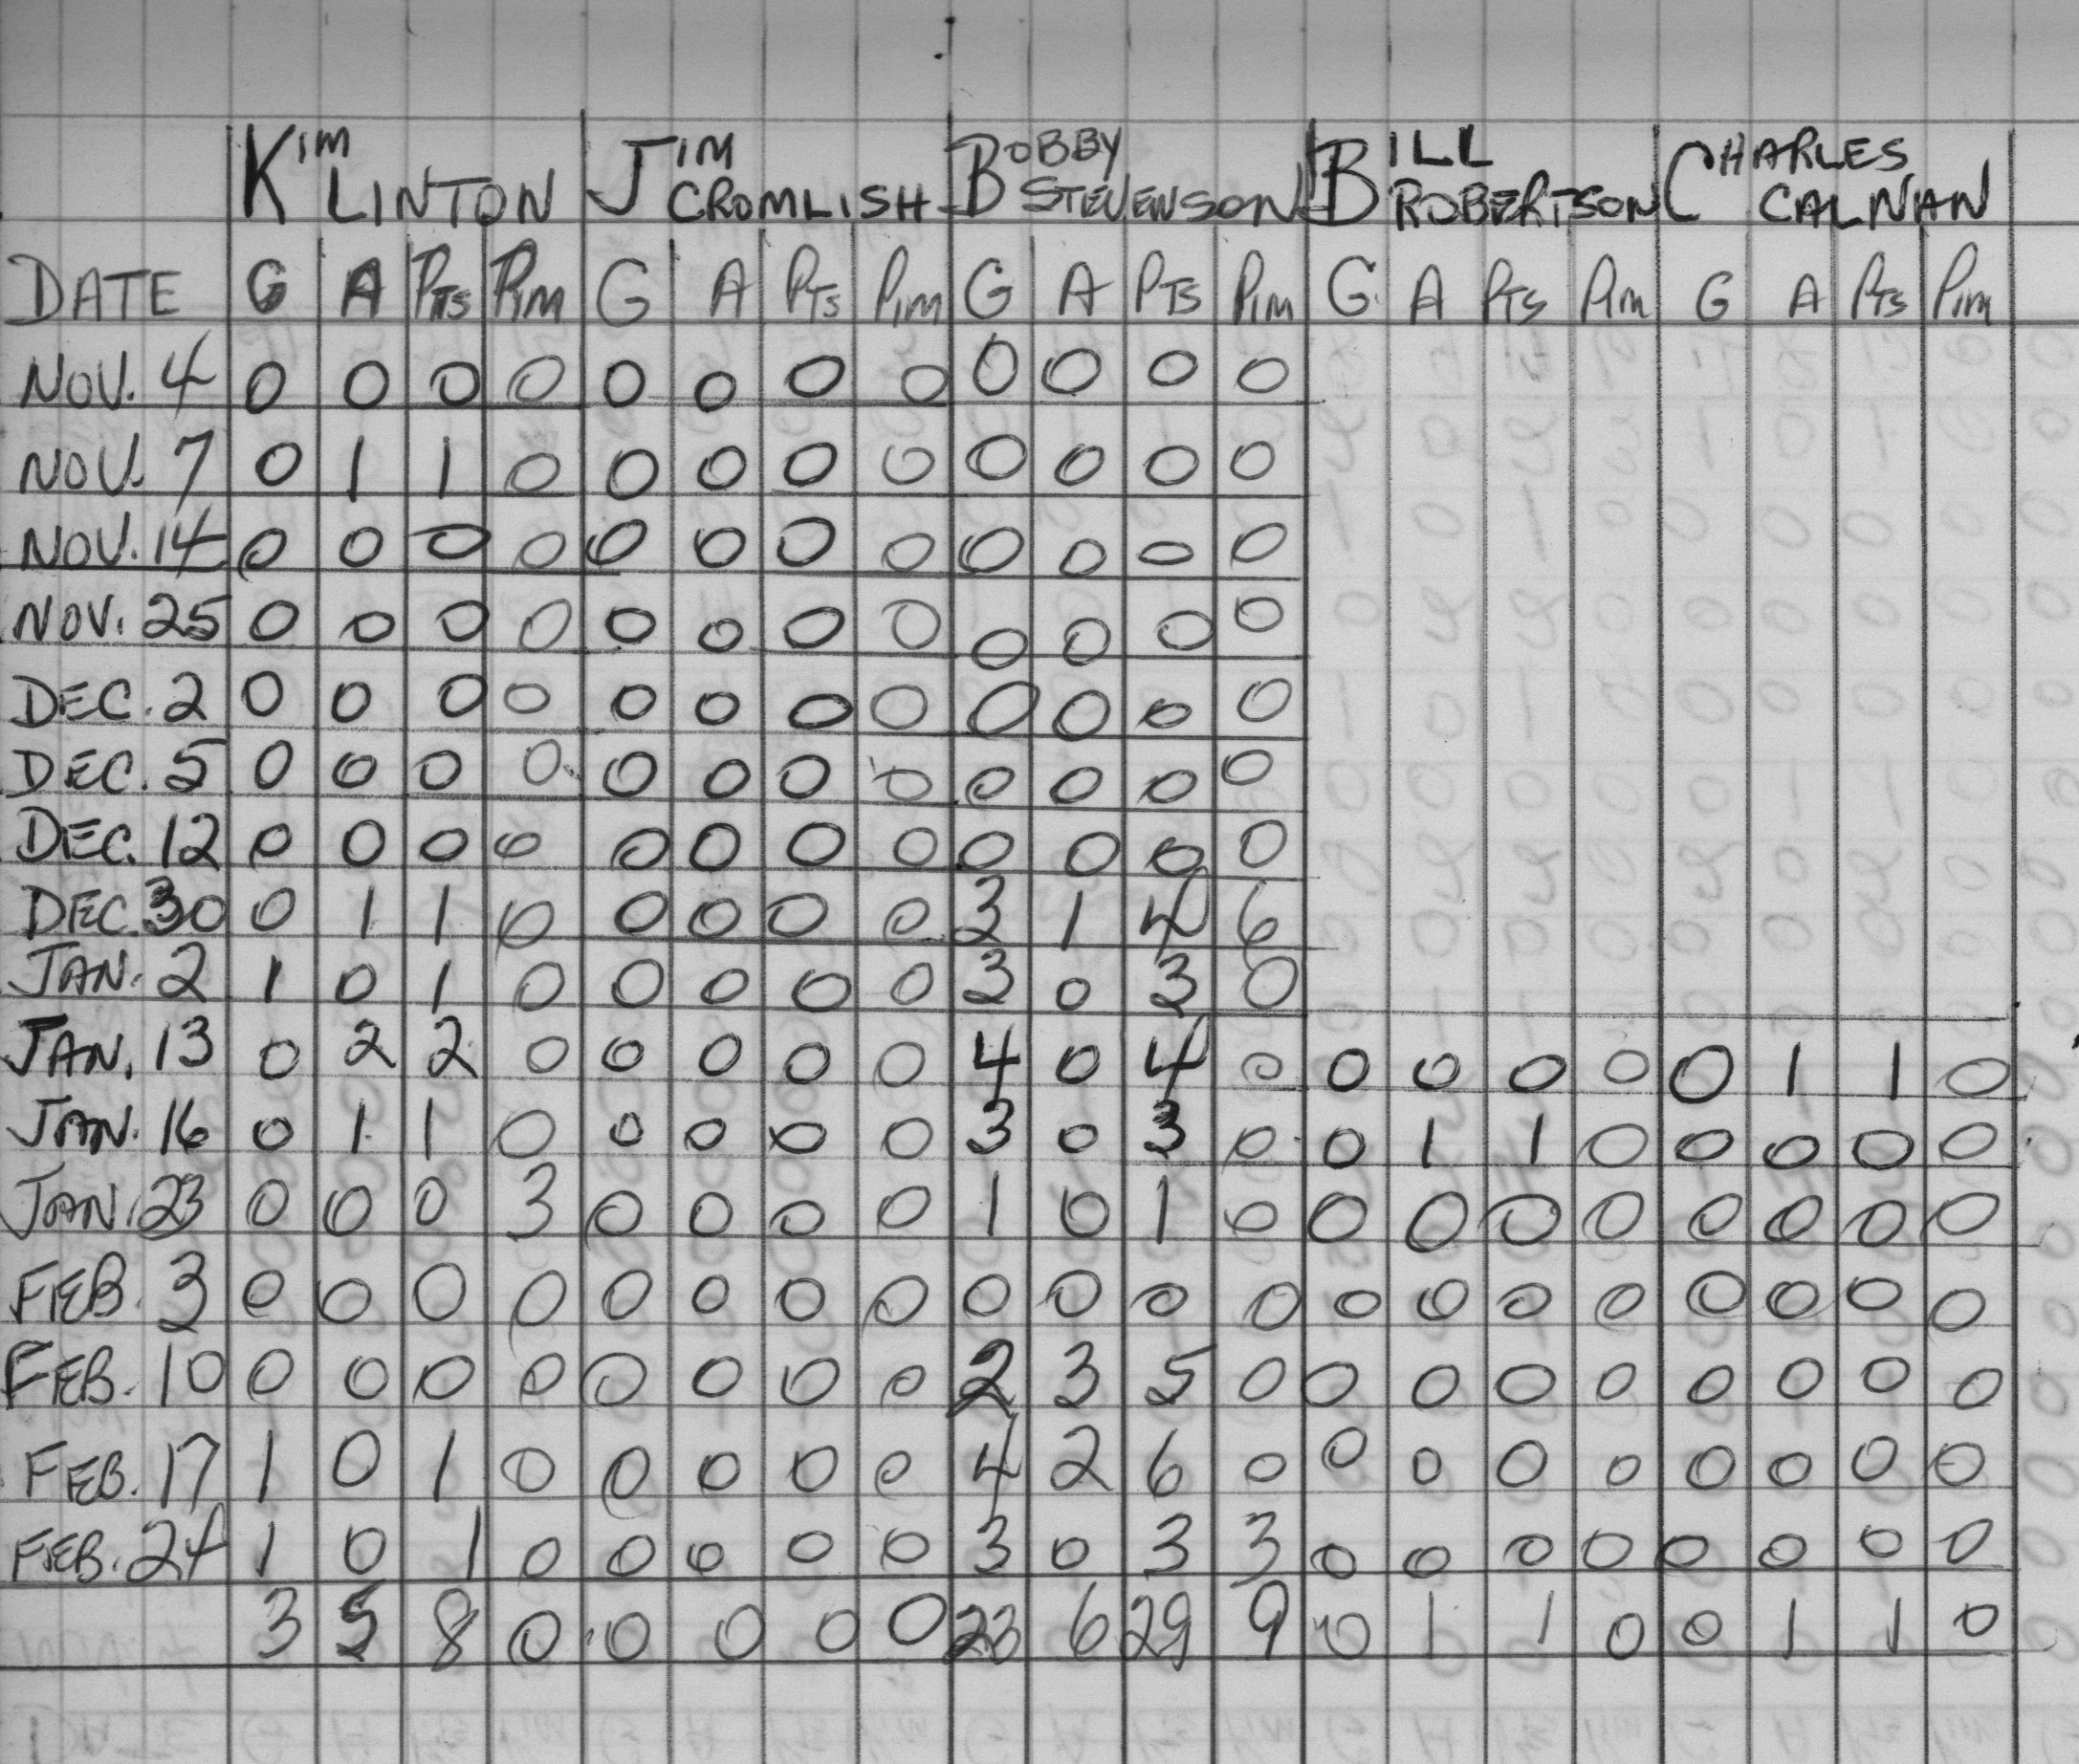 KIM LINTON JIM CROMLISH BOBBY STEVENSON BILL ROBERTSON CHARLES CALNAN
DATE G A PTS PIM G A PTS PIM G A PTS PIM G A PTS PIM G A PTS PIM
NOV. 4 0 0 0 0 0 0 0 0 0 0 0 0
NOV. 7 0 1 1 0 0 0 0 0 0 0 0 0
NOV. 14 0 0 0 0 0 0 0 0 0 0 0 0
NOV. 25 0 0 0 0 0 0 0 0 0 0 0 0
DEC. 2 0 0 0 0 0 0 0 0 0 0 0 0
DEC. 5 0 0 0 0 0 0 0 0 0 0 0 0
DEC. 12 0 0 0 0 0 0 0 0 0 0 0 0
DEC. 30 0 1 1 0 0 0 0 0 3 1 4 6
JAN. 2 1 0 1 0 0 0 0 0 3 0 3 0
JAN. 13 0 2 2 0 0 0 0 0 4 0 4 0 0 0 0 0 0 1 1 0
JAN. 16 0 1 1 0 0 0 0 0 3 0 3 0 0 1 1 0 0 0 0 0
JAN. 23 0 0 0 3 0 0 0 0 1 0 1 0 0 0 0 0 0 0 0 0
FEB. 3 0 0 0 0 0 0 0 0 0 0 0 0 0 0 0 0 0 0 0 0
FEB. 10 0 0 0 0 0 0 0 0 2 3 5 0 0 0 0 0 0 0 0 0
FEB. 17 1 0 1 0 0 0 0 0 4 2 6 0 0 0 0 0 0 0 0 0
FEB. 24 1 0 1 0 0 0 0 0 3 0 3 3 0 0 0 0 0 0 0 0
3 5 8 0 0 0 0 0 23 6 29 9 0 1 1 0 0 1 1 0